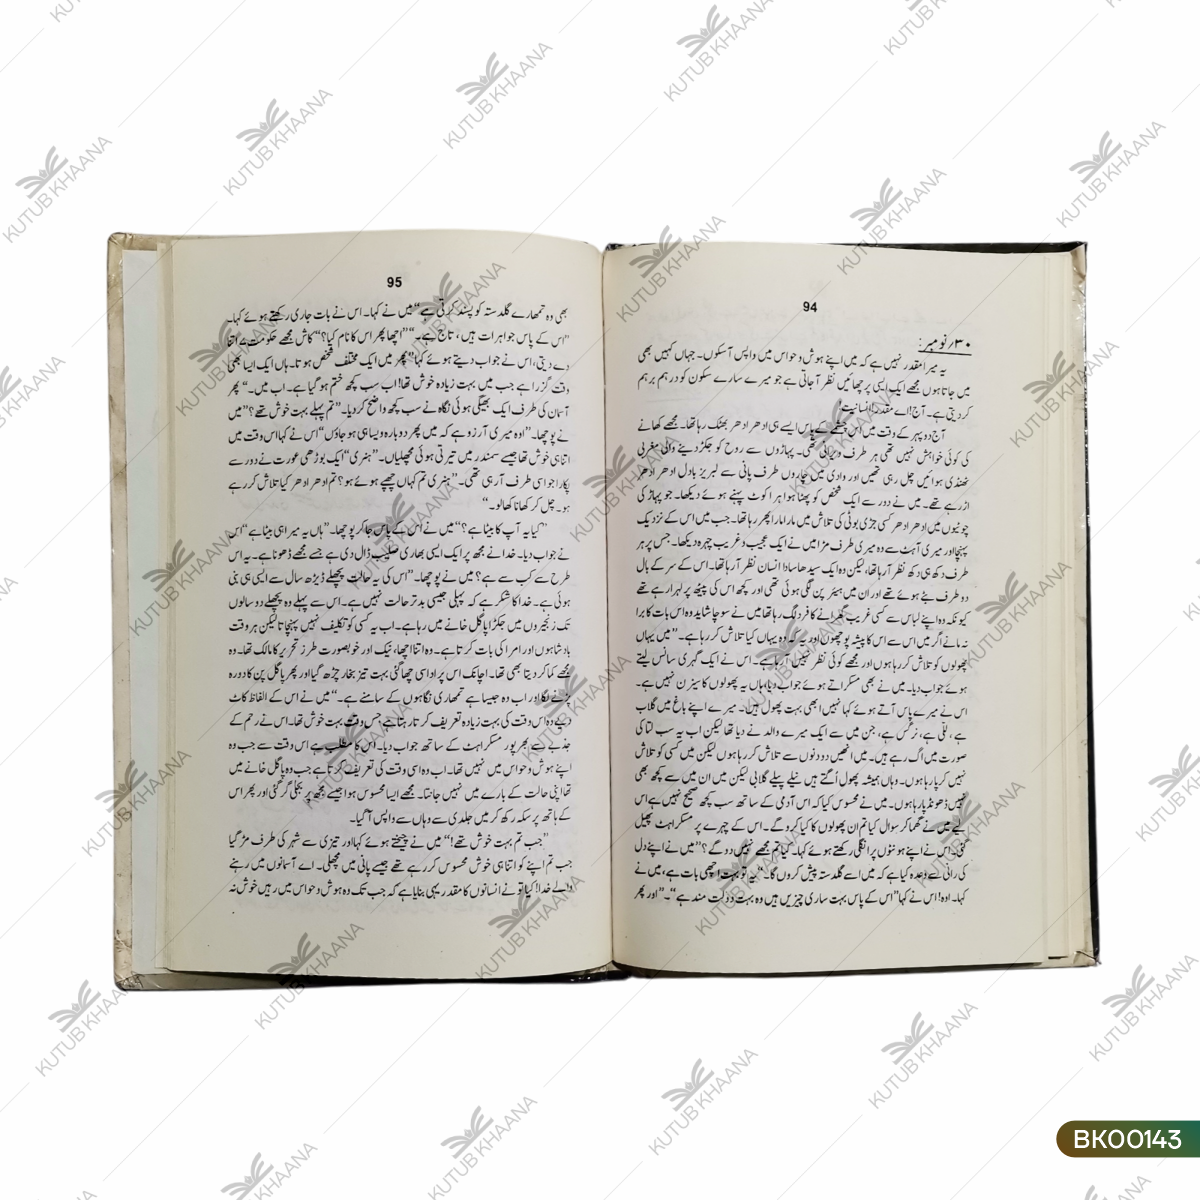 94
۳۰ نومبر:
یہ میرا مقدر نہیں ہے کہ میں اپنے ہوش و حواس میں واپس آسکوں۔ جہاں کہیں بھی
میں جاتا ہوں مجھے ایک ایسی پرچھائیں نظر آجاتی ہے جو میرے سارے سکون کو درہم برہم
کردیتی ہے۔ آج! اے مقدر! انسانیت!
آج دوپہر کے وقت میں اس چشمے کے پاس ایسے ہی ادھر ادھر بھٹک رہا تھا۔ مجھے کھانے
کی کوئی خواہش نہیں تھی ہر طرف ویرانی تھی۔ پہاڑوں سے روح کو جکڑ دینے والی مغربی
ٹھنڈی ہوائیں چل رہی تھیں اور وادی میں چاروں طرف پانی سے لبریز بادل ادھر ادھر
اڑ رہے تھے۔ میں نے دور سے ایک شخص کو پھٹا ہوا ہرا کوٹ پہنے ہوئے دیکھا۔ جو پہاڑ کی
چوٹیوں میں ادھر ادھر کسی جڑی بوٹی کی تلاش میں مارا مارا پھر رہا تھا۔ جب میں اس کے نزدیک
پہنچا اور میری آہٹ سے وہ میری طرف مڑا میں نے ایک عجیب و غریب چہرہ دیکھا۔ جس پر ہر
طرف دکھ ہی دکھ نظر آرہا تھا، لیکن وہ ایک سیدھا سادا انسان نظر آرہا تھا۔ اس کے سر کے بال
دو طرف بٹے ہوئے تھے اور ان میں ہیئر پن لگی ہوئی تھی اور کچھ اس کی پیٹھ پر لہرا رہے تھے
کیونکہ وہ اپنے لباس سے کسی غریب گھرانے کا فرد لگ رہا تھا میں نے سوچا شاید وہ اس بات کا برا
نہ مانے اگر میں اس سے اس کا پیشہ پوچھوں اور یہ کہ وہ یہاں کیا تلاش کر رہا ہے۔ ”میں یہاں
پھولوں کو تلاش کر رہا ہوں اور مجھے کوئی نظر نہیں آرہا ہے۔ اس نے ایک گہری سانس لیتے
ہوئے جواب دیا۔ میں نے بھی مسکراتے ہوئے جواب دیا ہاں یہ پھولوں کا سیزن نہیں ہے۔
اس نے میرے پاس آتے ہوئے کہا نہیں ابھی بہت پھول ہیں۔ میرے اپنے باغ میں گلاب
ہے، للّی ہے، نرگس ہے، جن میں سے ایک میرے والد نے دیا تھا لیکن اب یہ سب لتا کی
صورت میں اُگ رہے ہیں۔ میں انھیں دو دنوں سے تلاش کر رہا ہوں لیکن میں کسی کو تلاش
نہیں کر پا رہا ہوں۔ وہاں ہمیشہ پھول اُگتے ہیں نیلے پیلے گلابی لیکن میں ان میں سے کچھ بھی
نہیں ڈھونڈ پا رہا ہوں۔ میں نے محسوس کیا کہ اس آدمی کے ساتھ سب کچھ صحیح نہیں ہے اس
لیے میں نے گھما کر سوال کیا تم ان پھولوں کا کیا کرو گے۔ اس کے چہرے پر مسکراہٹ پھیل
گئی۔ اس نے اپنے ہونٹوں پر انگلی رکھتے ہوئے کہا۔ کیا تم مجھے نہیں دو گے؟ ”میں نے اپنے دل
کی رانی سے وعدہ کیا ہے کہ میں اسے گلدستہ پیش کروں گا۔“ ”یہ تو بہت اچھی بات ہے، میں نے
کہا۔ اوہ! اس نے کہا ”اس کے پاس بہت ساری چیزیں ہیں وہ بہت دولت مند ہے“۔ ”اور پھر
95
بھی وہ تمھارے گلدستہ کو پسند کرتی ہے“ میں نے کہا۔ اس نے بات جاری رکھتے ہوئے کہا۔
”اس کے پاس جواہرات ہیں، تاج ہے۔“ ”اچھا پھر اس کا نام کیا؟“ کاش مجھے حکومت نے اتنا
دے دیتی، اس نے جواب دیتے ہوئے کہا ”پھر میں ایک مختلف شخص ہوتا۔ ہاں ایک ایسا بھی
وقت گزرا ہے جب میں بہت زیادہ خوش تھا! اب سب کچھ ختم ہو گیا ہے۔ اب میں۔“ پھر
آسمان کی طرف ایک بھیگی ہوئی نگاہ نے سب کچھ واضح کر دیا۔ ”تم پہلے بہت خوش تھے؟“ میں
نے پوچھا۔ ”اوہ میری آرزو ہے کہ میں پھر دوبارہ ویسا ہی ہو جاؤں“ اس نے کہا اس وقت میں
اتنا ہی خوش تھا جیسے سمندر میں تیرتی ہوئی مچھلیاں۔ ”ہنری“ ایک بوڑھی عورت نے دور سے
پکارا جو اسی طرف آرہی تھی۔ ”ہنری تم کہاں چھپے ہوئے ہو؟ تم ادھر ادھر کیا تلاش کر رہے
ہو۔ چل کر کھانا کھا لو۔“
”کیا یہ آپ کا بیٹا ہے؟“ میں نے اس کے پاس جا کر پوچھا۔ ”ہاں یہ میرا ہی بیٹا ہے“ اس
نے جواب دیا۔ خدا نے مجھ پر ایک ایسی بھاری صلیب ڈال دی ہے جسے مجھے ڈھونا ہے۔ یہ اس
طرح سے کب سے ہے؟ میں نے پوچھا۔ ”اس کی یہ حالت پچھلے ڈیڑھ سال سے ایسی ہی بنی
ہوئی ہے۔ خدا کا شکر ہے کہ پہلی جیسی بدتر حالت نہیں ہے۔ اس سے پہلے وہ پچھلے دو سالوں
تک زنجیروں میں جکڑا پاگل خانے میں رہا ہے۔ اب یہ کسی کو تکلیف نہیں پہنچاتا لیکن ہر وقت
بادشاہوں اور امرا کی بات کرتا ہے۔ وہ اتنا اچھا، نیک اور خوبصورت طرز تحریر کا مالک تھا۔ وہ
مجھے کما کر دیتا بھی تھا۔ اچانک اس پر اداسی چھا گئی بہت تیز بخار چڑھ گیا اور پھر پاگل پن کا دورہ
پڑنے لگا اور اب وہ جیسا ہے تمھاری نگاہوں کے سامنے ہے۔“ میں نے اس کے الفاظ کاٹ
دیے وہ اس وقت کی بہت زیادہ تعریف کرتا رہتا ہے جس وقت بہت خوش تھا۔ اس نے رحم کے
جذبے سے بھرپور مسکراہٹ کے ساتھ جواب دیا۔ اس کا مطلب ہے اس وقت سے جب وہ
اپنے ہوش و حواس میں نہیں تھا۔ اب وہ اسی وقت کی تعریف کرتا ہے جب وہ پاگل خانے میں
تھا اپنی حالت کے بارے میں نہیں جانتا۔ مجھے ایسا محسوس ہوا جیسے مجھ پر بجلی گر گئی اور پھر اس
کے ہاتھ پر سکہ رکھ کر میں جلدی سے وہاں سے واپس آ گیا۔
”جب تم بہت خوش تھے!“ میں نے چیختے ہوئے کہا اور تیزی سے شہر کی طرف مڑ گیا
جب تم اپنے کو اتنا ہی خوش محسوس کر رہے تھے جیسے پانی میں مچھلی۔ اے آسمانوں میں رہنے
والے خدا! کیا تو نے انسانوں کا مقدر یہی بنایا ہے کہ جب تک وہ ہوش و حواس میں رہیں خوش نہ
KUTUB KHAANA
BK00143